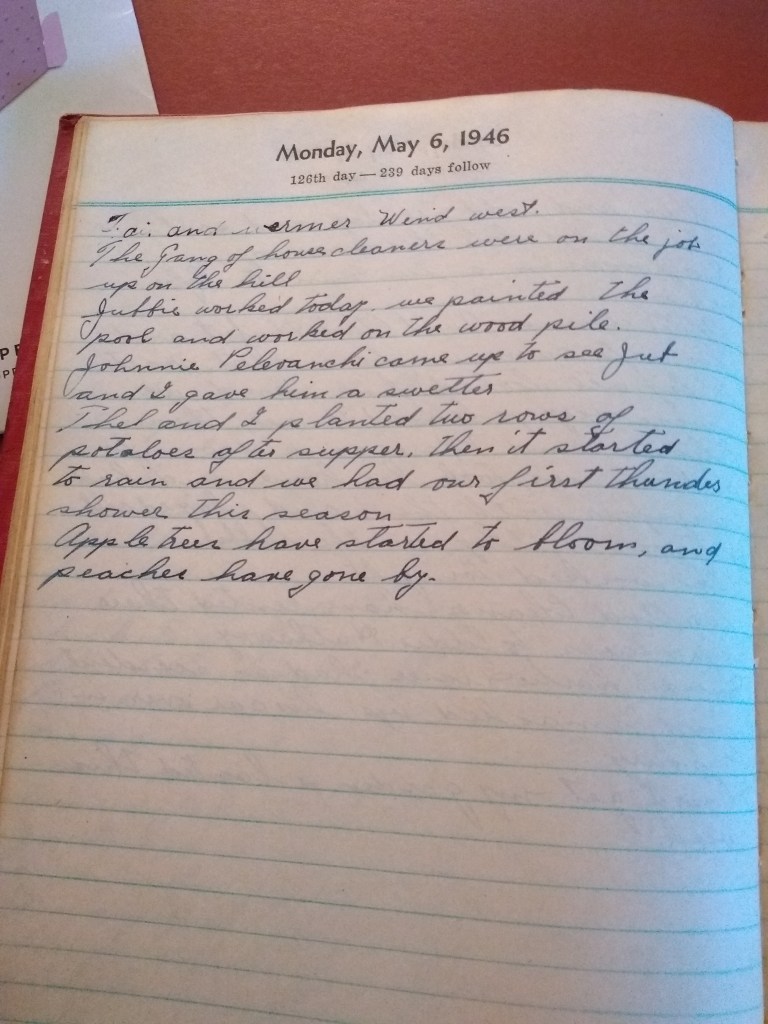 Monday, May 6, 1946
126th day — 239 days follow
and wermer Wind west.
The Gang of house cleaners were on the job
up on the hill
Jubbie worked today. we painted the
pool and worked on the wood pile.
Johnnie came up to see Jut
and I gave him a swetter
Thel and I planted two rows of
potatoes after supper. then it started
to rain and we had our first thunder
shower this season
Apple trees have started to bloom, and
peaches have gone by.